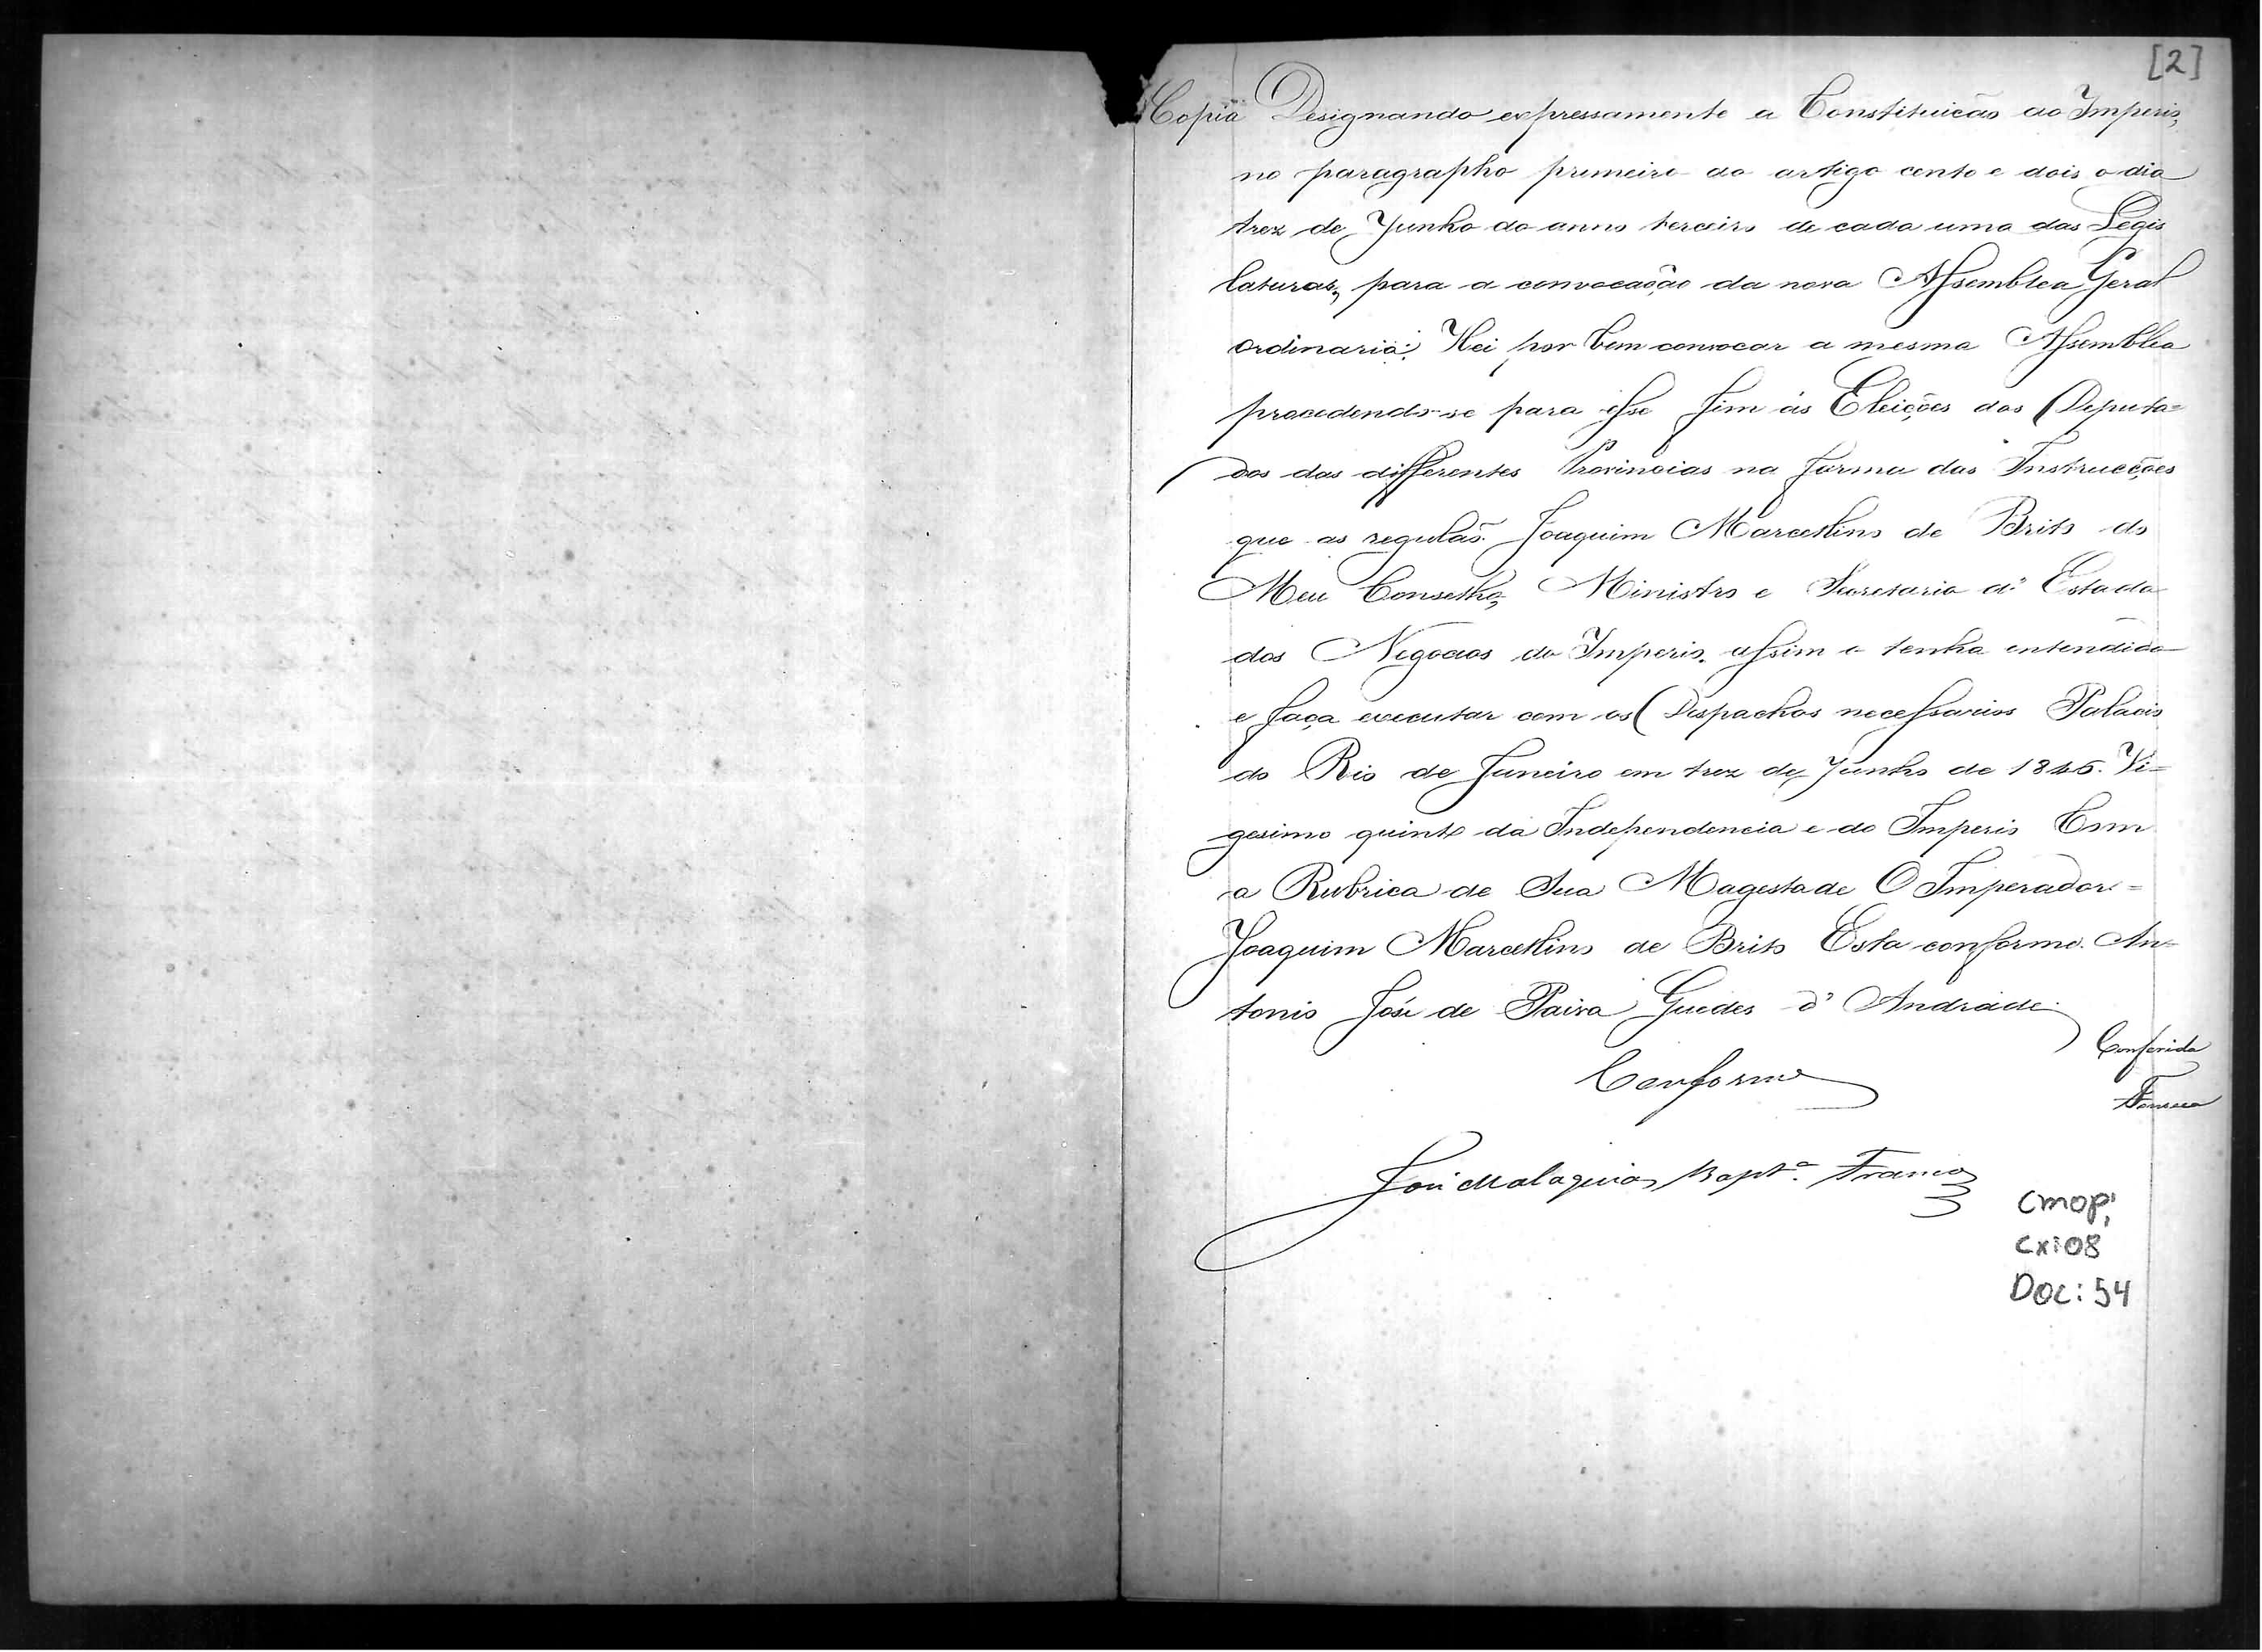 [2]
Copia Designando expressamente a Constituicão do Imperio,
no paragrapho primeiro do artigo cento e dois o dia
trez de Junho do anno terceiro de cada uma das Legis
laturas, para a convocação da nova Assemblea Geral
ordinaria: Hei por bem convocar a mesma Assemblea
procedendo-se para esse fim ás Eleições dos Deputa=
dos das differentes Provincias na forma das Instrucções
que as regulão. Joaquim Marcellino de Brito do
Meu Conselho, Ministro e Secretario d'Estado
dos Negocios do Imperio. assim o tenha entendido
e faça executar com os Despachos necessarios Palacio
do Rio de Janeiro em trez de Junho de 1846. Vi=
gesimo quinto da Independencia e do Imperio Com
a Rubrica de Sua Magestade O Imperador =
Joaquim Marcellino de Brito Esta conforme. An=
tonio José de Paiva Guedes d'Andrade.
Conferida
Conforme
Fonseca
José Malaquias Bapt.ª Franco
CMOP,
CX:08
DOC:54